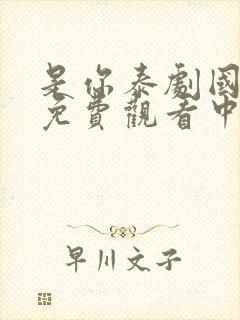 是你泰劇國
免費觀看中
早川文子